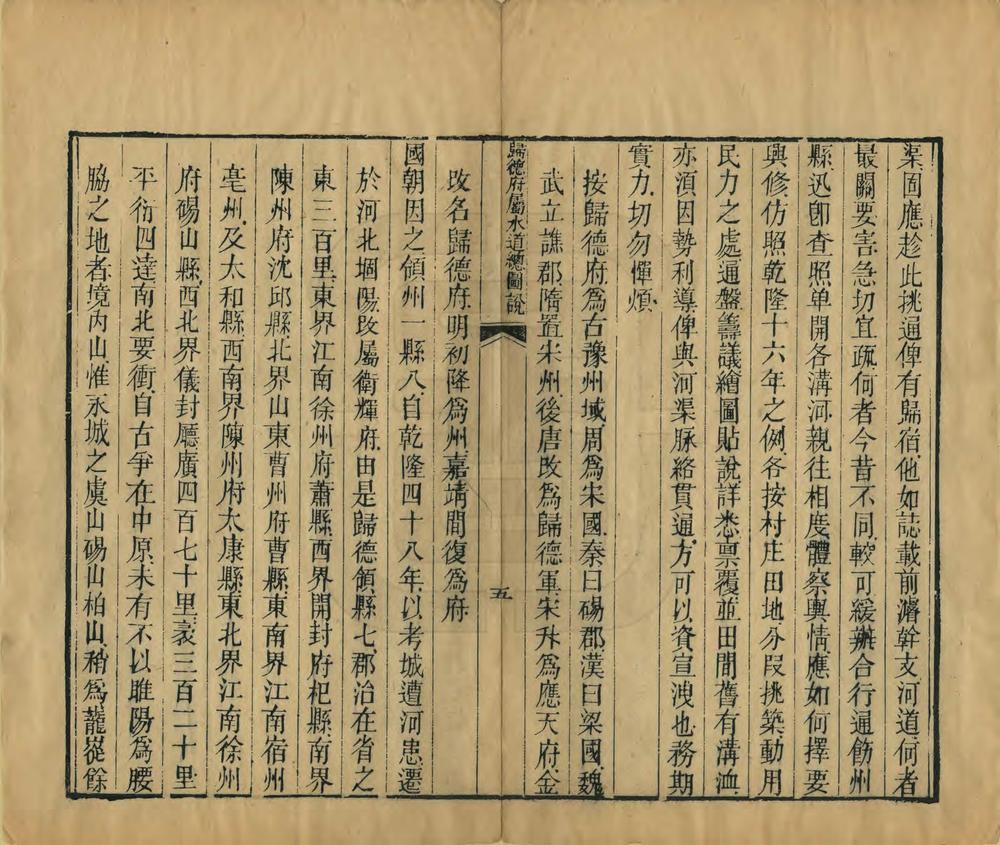 渠固應趁此挑通俾有歸宿他如誌載前濬幹支河道何者
最關要害急切宜疏何者今昔不同較可緩辦合行通飭州
縣迅卽查照单開各溝河親往相度體察輿情應如何擇要
興修仿照乾隆十六年之例各按村庄田地分段挑築動用
民力之處通盤籌議繪圖貼說詳悉禀覆並田間舊有溝洫
亦須因勢利導俾與河渠脉絡貫通方可以資宣洩也務期
實力切勿憚煩
按歸德府爲古豫州域周爲宋國秦曰碭郡漢曰梁國魏
武立譙郡隋置宋州後唐改爲歸德軍宋升爲應天府金
歸德府屬水道總圖說
五
改名歸德府明初降爲州嘉靖間復爲府
國朝因之領州一縣八自乾隆四十八年以考城遭河患遷
於河北堌陽改屬衛輝府由是歸德領縣七郡治在省之
東三百里東界江南徐州府蕭縣西界開封府杞縣南界
陳州府沈邱縣北界山東曹州府曹縣東南界江南宿州
亳州及太和縣西南界陳州府太康縣東北界江南徐州
府碭山縣西北界儀封廳廣四百七十里袤三百二十里
平衍四達南北要衝自古爭在中原未有不以睢陽爲腰
脇之地者境內山惟永城之虞山碭山柏山稍爲巃嵸餘